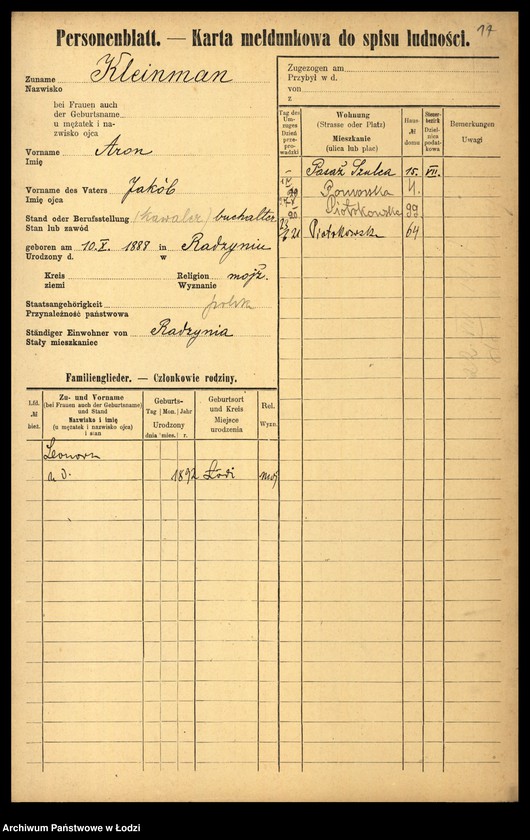 17
Personenblatt. — Karta meldunkowa do spisu ludności.
Zuname Kleinman
Nazwisko
bei Frauen auch
der Geburtsname
u mężatek i na-
zwisko ojca
Vorname Aron
Imię
Vorname des Vaters Jakób
Imię ojca
Stand oder Berufsstellung (kawaler) buchalter
Stan lub zawód
geboren am 10. X. 1888 in Radzyniu
Urodzony d. w
Kreis Religion mojż.
ziemi Wyznanie
Staatsangehörigkeit polska
Przynależność państwowa
Ständiger Einwohner von Radzynia
Stały mieszkaniec
Familienglieder. — Członkowie rodziny.
Lfd. № bież.
Zu- und Vorname
(bei Frauen auch der Geburtsname)
und Stand
Nazwisko i imię
(u mężatek i nazwisko ojca)
i stan
Geburts-
Tag Mon. Jahr
Urodzony
dnia mies. r.
Geburtsort
und Kreis
Miejsce
urodzenia
Rel.
Wyzn.
Leonora
1892 Łodzi moj
Zugezogen am
Przybył w d.
von
z
Tag des Um-
zuges
Dzień
prze-
prowadzki
Wohnung
(Strasse oder Platz)
Mieszkanie
(ulica lub plac)
Haus
№
domu
Steuer-
bezirk
Dziel-
nica
podat-
kowa
Bemerkungen
Uwagi
Pasaż Szulca 15. VII.
4.
Piotrkowska 99
Piotrkowska 64
Archiwum Państwowe w Łodzi